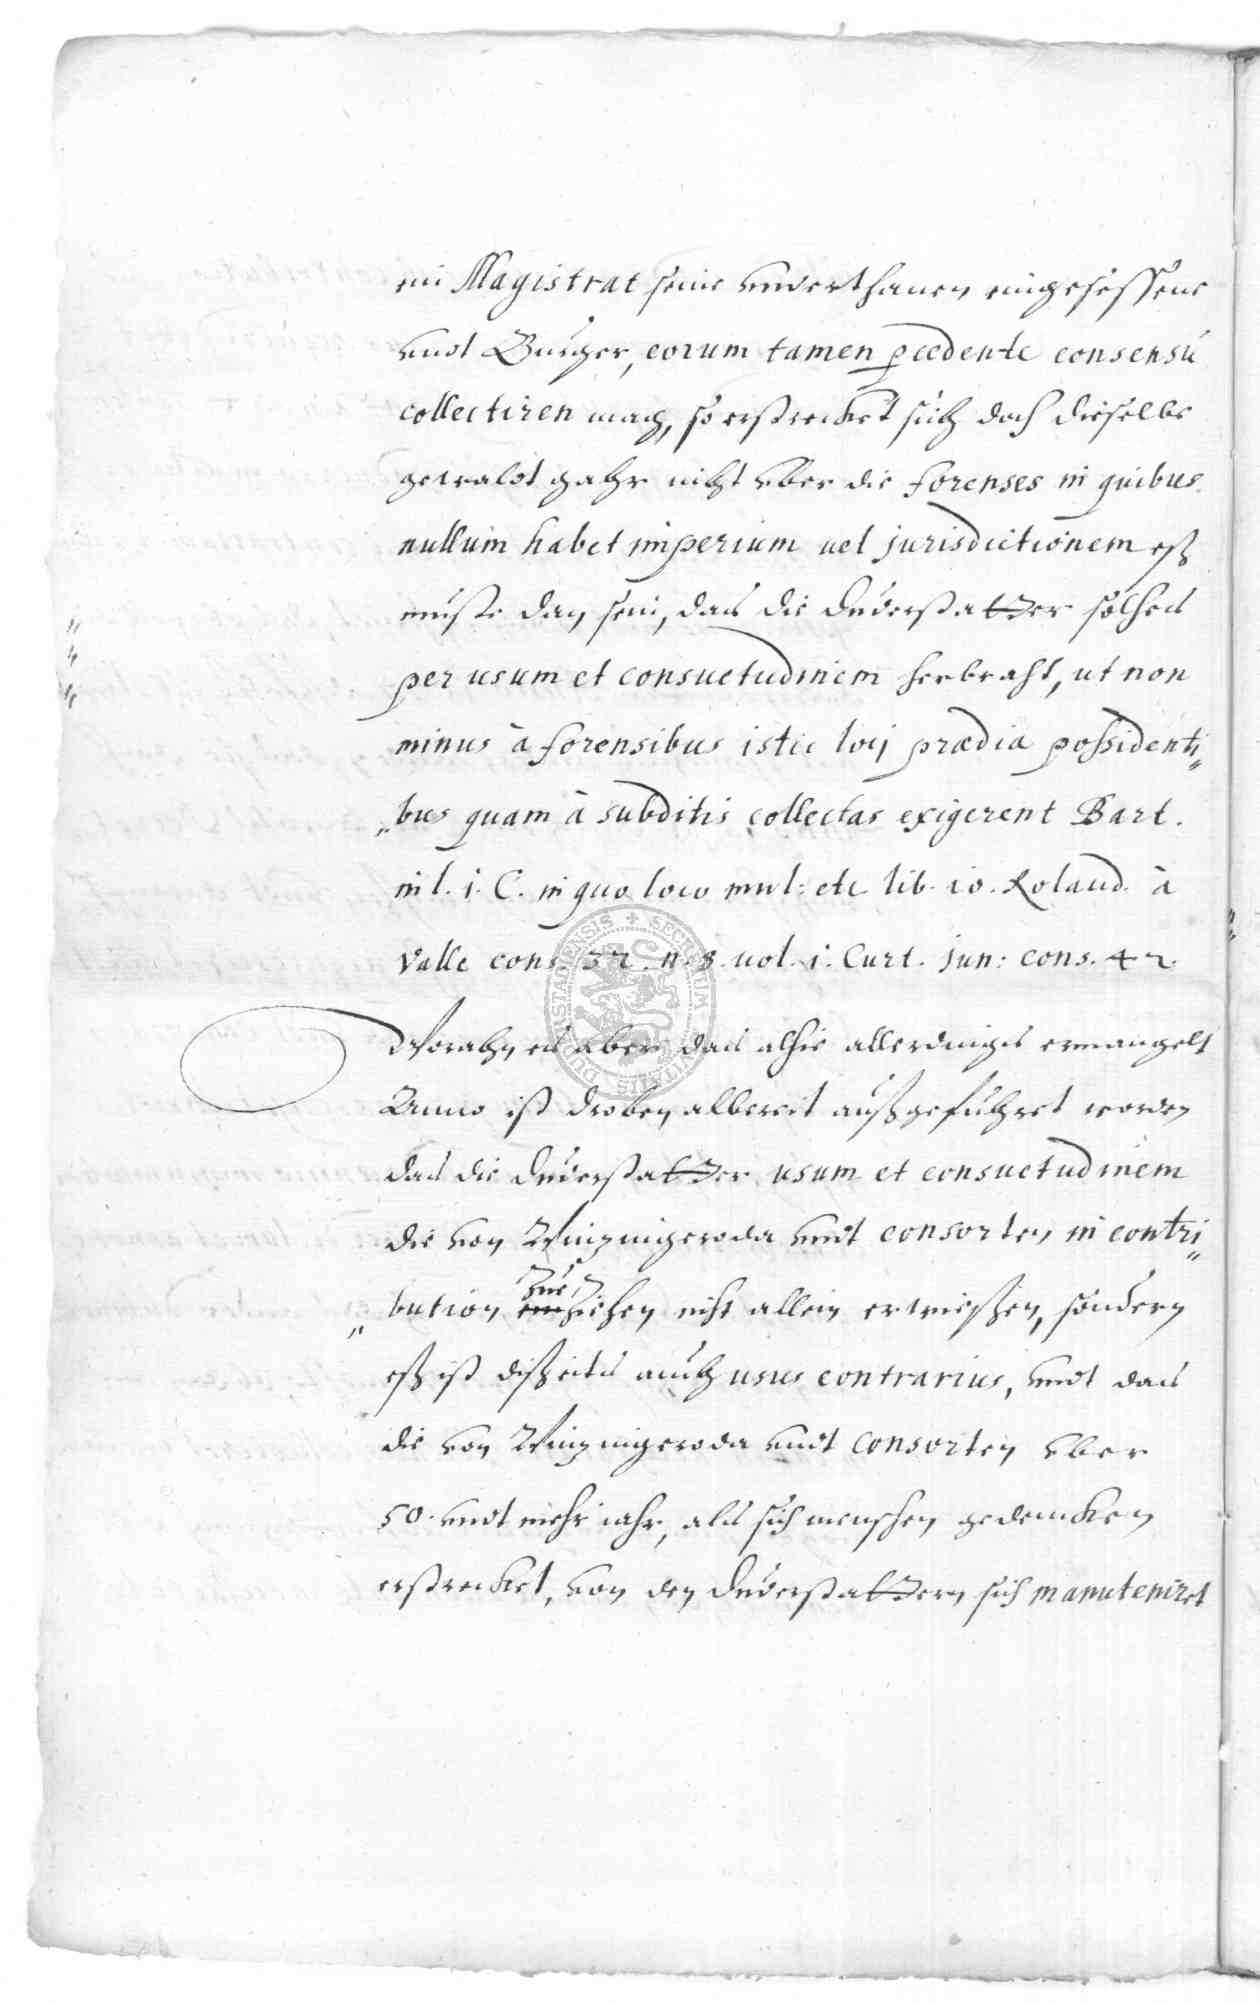 ein Magistrat seine underthanen eingesessene
undt Burger, eorum tamen pcedente consensu
collectiren mag, so erstrecket sich doch dieselbe
gewaldt gahr nicht uber die forenses in quibus
nullum habet imperium vel jurisdictionem eß
muste dan sein, das die Duderstatter solches
per usum et consuetudinem herbracht, ut non
minus à forensibus istic locij prædia possidenti„
„bus quam à subditis collectas exigerent Bart.
in l. 1. C. in quo loco mul: etc lib. 10. Roland. à
Valle cons. 32. n. 8. vol. 1. Curt. jun: cons. 42.
Worahn es aber das alhie allerdings ermangelt
Anno ist droben albereit außgefuhret worden
das die Duderstatter usum et consuetudinem
die von Winzingeroda undt consorten in contri„
„bution zue ziehen nicht allein erwiesen, sondern
eß ist dißeits auch usus contrarius, undt das
die von Winzingeroda undt consorten uber
50. undt mehr iahr, als sich menschen gedencken
erstrecket, von den Duderstattern sich manuteniret
SECRETUM CIVITATIS DUDERSTADIENSIS